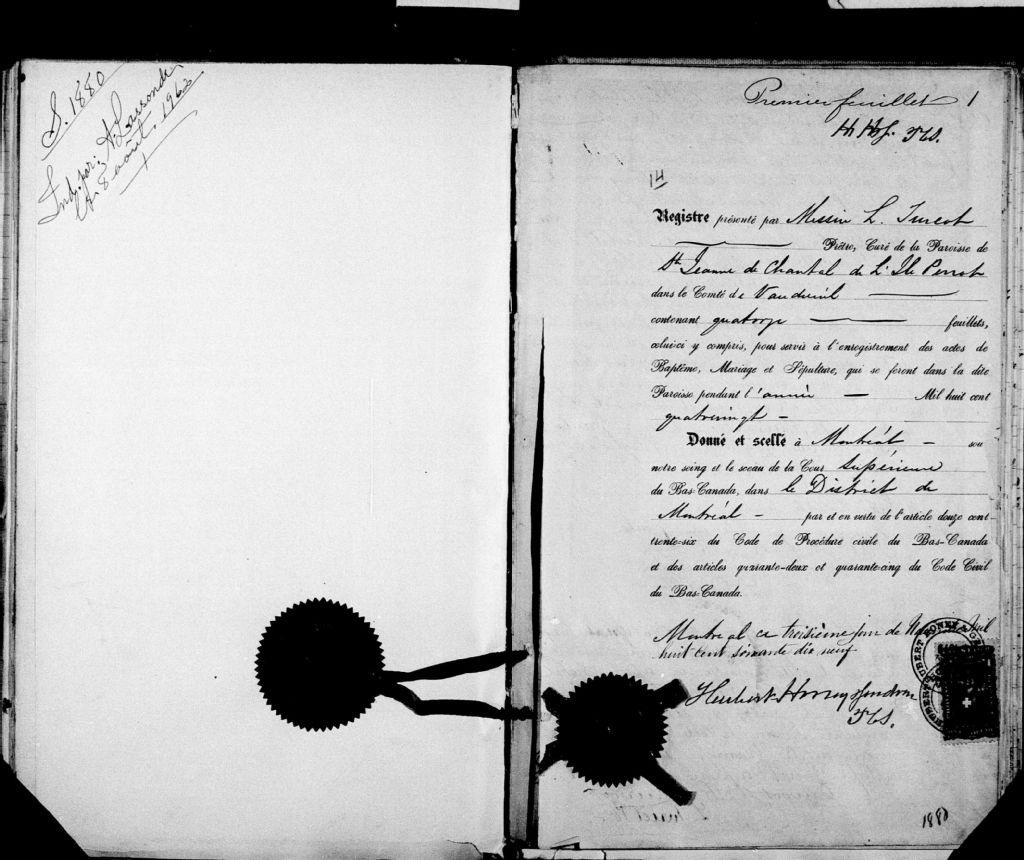 S. 1880
Ind. par: A. Lassonde
8 août 1962
Premier feuillet 1
HHG. PCS.
14
Registre présenté par Messire L. Turcot
Prêtre, Curé de la Paroisse de
Ste Jeanne de Chantal de L'Ile Perrot
dans le Comté de Vaudreuil
contenant quatorze feuillets,
celui-ci y compris, pour servir à l'enregistrement des actes de
Baptême, Mariage et Sépulture, qui se feront dans la dite
Paroisse pendant l'année Mil huit cent
quatrevingt
Donné et scellé à Montréal sou
notre seing et le sceau de la Cour Supérieure
du Bas-Canada, dans le District de
Montréal par et en vertu de l'article douze cent
trente-six du Code de Procédure civile du Bas-Canada
et des articles quarante-deux et quarante-cinq du Code Civil
du Bas-Canada.
Montreal ce troisième jour de Mil
huit cent soixante dix neuf
1880